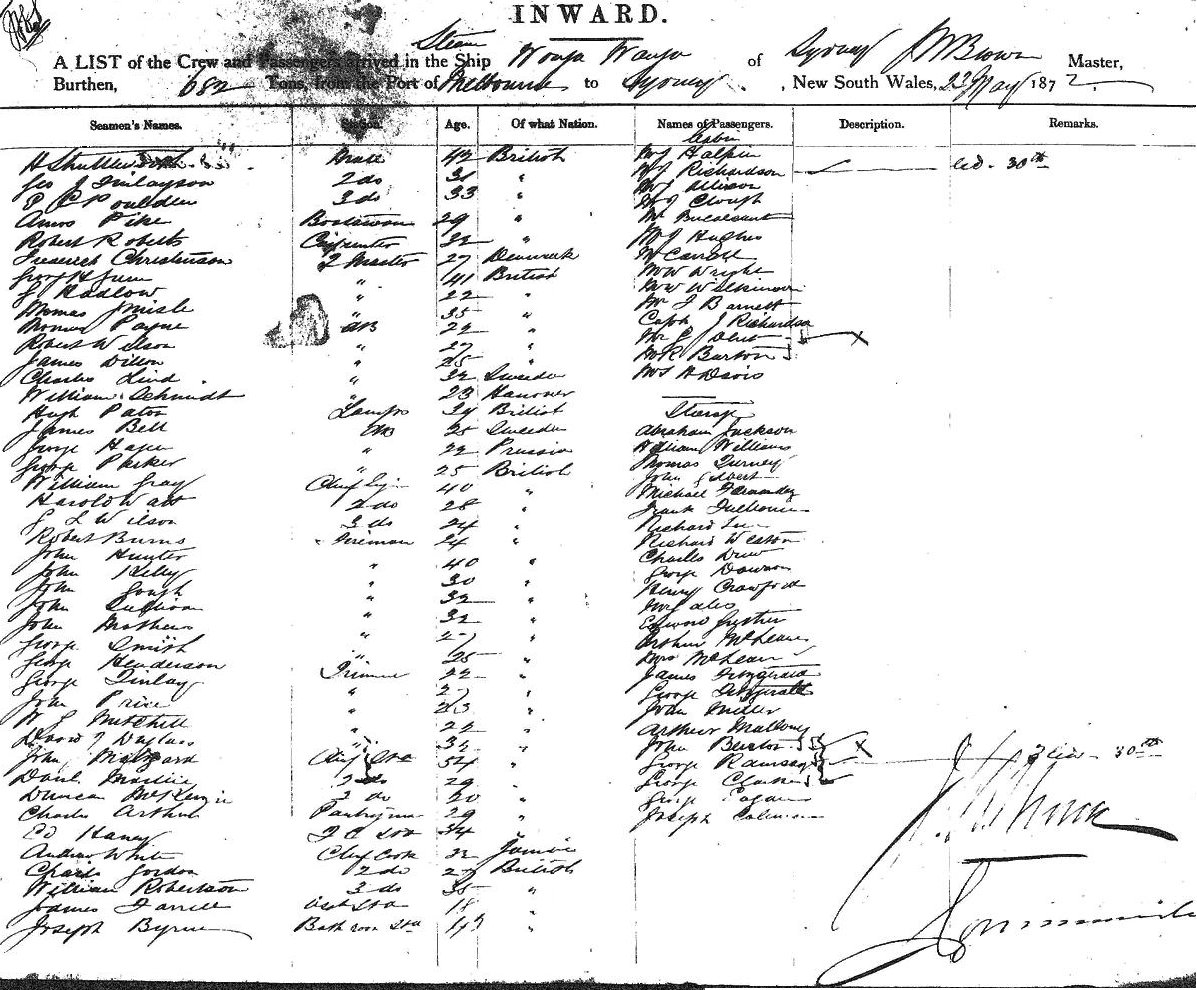 INWARD.
A LIST of the Crew and Passengers arrived in the Ship Steam Wonga Wonga of Sydney J W Brown Master,
Burthen, 682 Tons, from the Port of Melbourne to Sydney, New South Wales, 23 May 1872.
Seamen's Names. Station. Age. Of what Nation. Names of Passengers. Description. Remarks.
Cabin
H Mate 42 British Mrs Halpin
Geo J Finlayson 2 do 31 " Mrs Richardson led - 30th
P C Poulden 3 do 33 " Mrs Allison
Amos Pike Boatswain 29 " Mrs Clough
Robert Roberts Carpenter 32 " Mr
Frederick Christenson Q Master 27 Denmark Mrs Hughes
George H 41 British Mr Carroll
J Radlow " 22 " Mr W Wright
Thomas " 35 " Mr W Wilkinson
Thomas Payne AB 22 " Mr J Barnett
Robert Wilson " 27 " Capt J Richardson
James Dillon " 25 " Mr
Charles Lind " 32 Sweden Mr R Burton
William Schmidt " 23 Hanover Mrs H Davis
Hugh Paton Lamps 39 British Steerage
James Bell AB 25 Sweden Abraham Jackson
George " 22 Prussia William Williams
George Parker " 25 British Thomas Turney
William Gray Chief Eng 40 " John Gilbert
Harold Watt 2 do 28 " Michael Fernandez
J L Wilson 3 do 24 " Frank
Robert Burns Fireman 24 " Richard
John Hunter " 40 " Richard Weston
John Kelly " 30 " Charles Drew
John Gough " 32 " George Dawson
John Sullivan " 32 " Henry Crawford
John Mathews " 27 "
George Smith " 25 " Edward
George Henderson Trimmer 22 " Arthur McLean
George Finlay " 27 " Mrs McLean
John Price " 23 " James Fitzgerald
W J Mitchell " 22 " George Fitzgerald
David J Douglass " 32 " John Miller
John Chief Std 54 " Arthur Mallony
David 2 do 29 " John Burton
Duncan McKenzie 3 do 20 " George Ramsay 3 led - 30th
Charles Arthur Pantryman 29 " George Clarke
Ed Haney 34 " George
Andrew White Chief Cook 32 Joseph Coleman
Charles Gordon 2 do 27 British
William Robertson 3 do 35 "
James Farrell Asst Std 18 "
Joseph Byrne Bath room Std 19 "